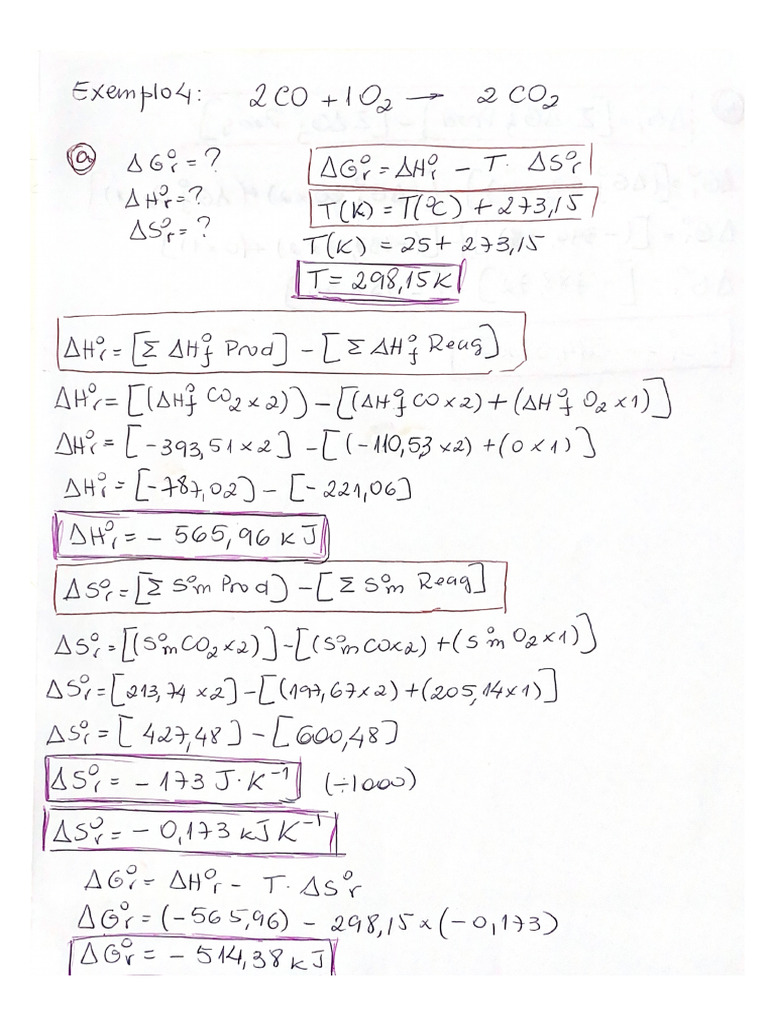 Exemplo 4: 2CO + 1O₂ → 2CO₂
a ΔG°r = ? ΔG°r = ΔH°r - T · ΔS°r
ΔH°r = ? T(K) = T(°C) + 273,15
ΔS°r = ? T(K) = 25 + 273,15
T = 298,15K
ΔH°r = [Σ ΔH°f Prod] - [Σ ΔH°f Reag]
ΔH°r = [(ΔH°f CO₂ × 2)] - [(ΔH°f CO × 2) + (ΔH°f O₂ × 1)]
ΔH°r = [-393,51 × 2] - [(-110,53 × 2) + (0 × 1)]
ΔH°r = [-787,02] - [-221,06]
ΔH°r = - 565,96 kJ
ΔS°r = [Σ S°m Prod] - [Σ S°m Reag]
ΔS°r = [(S°m CO₂ × 2)] - [(S°m CO × 2) + (S°m O₂ × 1)]
ΔS°r = [213,74 × 2] - [(197,67 × 2) + (205,14 × 1)]
ΔS°r = [427,48] - [600,48]
ΔS°r = - 173 J · K⁻¹ (÷1000)
ΔS°r = - 0,173 kJ K⁻¹
ΔG°r = ΔH°r - T · ΔS°r
ΔG°r = (-565,96) - 298,15 × (-0,173)
ΔG°r = - 514,38 kJ